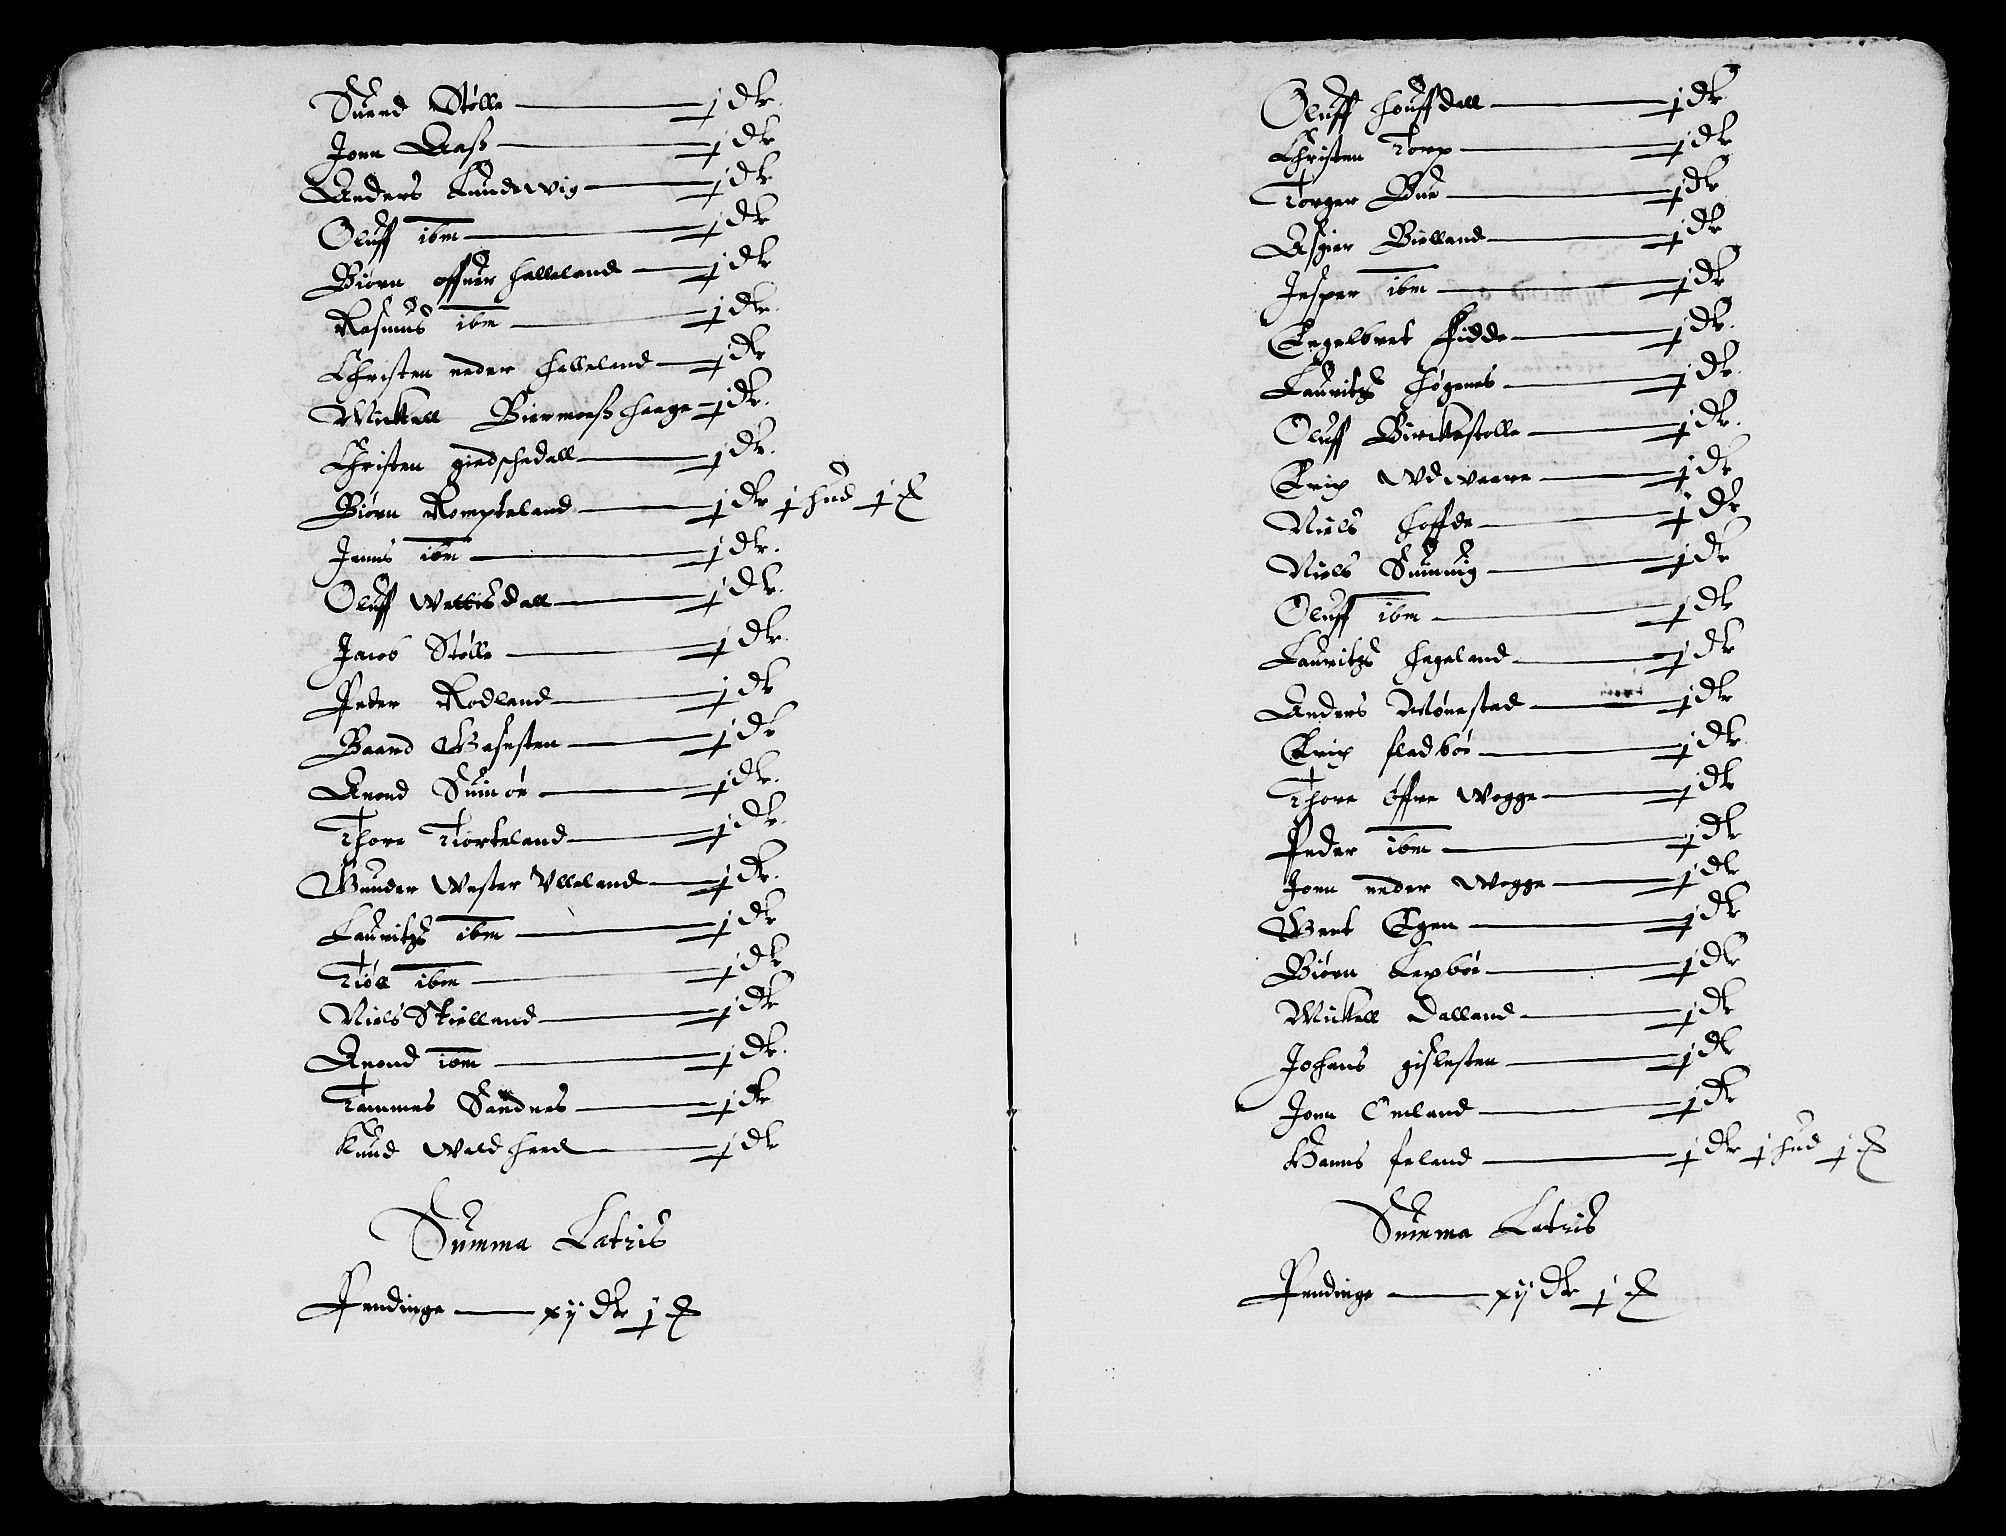 Suend Stølle — j dlr.
Jonn Aass — j dlr
Anders Lundewig — j dlr
Oluff ibm — j dlr
Biørn offuer Helleland — j dlr
Rasmus ibm — j dlr.
Christen neder Helleland — j dlr
Mickell Biermoess Haage — j dlr.
Christen giedschedall — j dlr.
Biørn Rompteland — j dlr j hud j
Jenns ibm — j dlr.
Oluff Wettisdall — j dlr.
Jacob Stølle — j dlr.
Peder Rodland — j dlr
Baard Gasesten — j dlr
Anond Suinør — j dlr.
Thore Tiorteland — j dlr.
Gunder Wester Ulleland — j dlr.
Lauritz ibm — j dlr
Tiøl ibm — j dlr
Niels Skielland — j dlr
Anond ibm — j dlr.
Tammes Sandnes — j dlr
Knud Waldheed — j dlr
Summa Latris
Pendinge — xij dlr j
Oluff Houffdall — j dlr
Christen Torp — j dlr
Torger Bue — j dlr
Asgier Bielland — j dlr
Jesper ibm — j dlr
Engelbret Fidde — j dlr.
Lauritz Høgenes — j dlr.
Oluff Birckestølle — j dlr.
Erix Udwaare — j dlr
Niels Hoffde — j dlr
Niels Sunnuig — j dlr
Oluff ibm — j dlr
Lauritz Hegeland — j dlr
Anders Mønestad — j dlr
Erix fladbøe — j dlr.
Thore øffre Wegge — j dlr
Peder ibm — j dlr
Jonn neder Wegge — j dlr
Gert Egen — j dlr
Biørn Lexbøe — j dlr
Mickell Dalland — j dlr
Johans gislesten — j dlr
Jonn Omland — j dlr
Hanns feland — j dlr j hud j
Summa Latris
Pendinge — xij dlr j